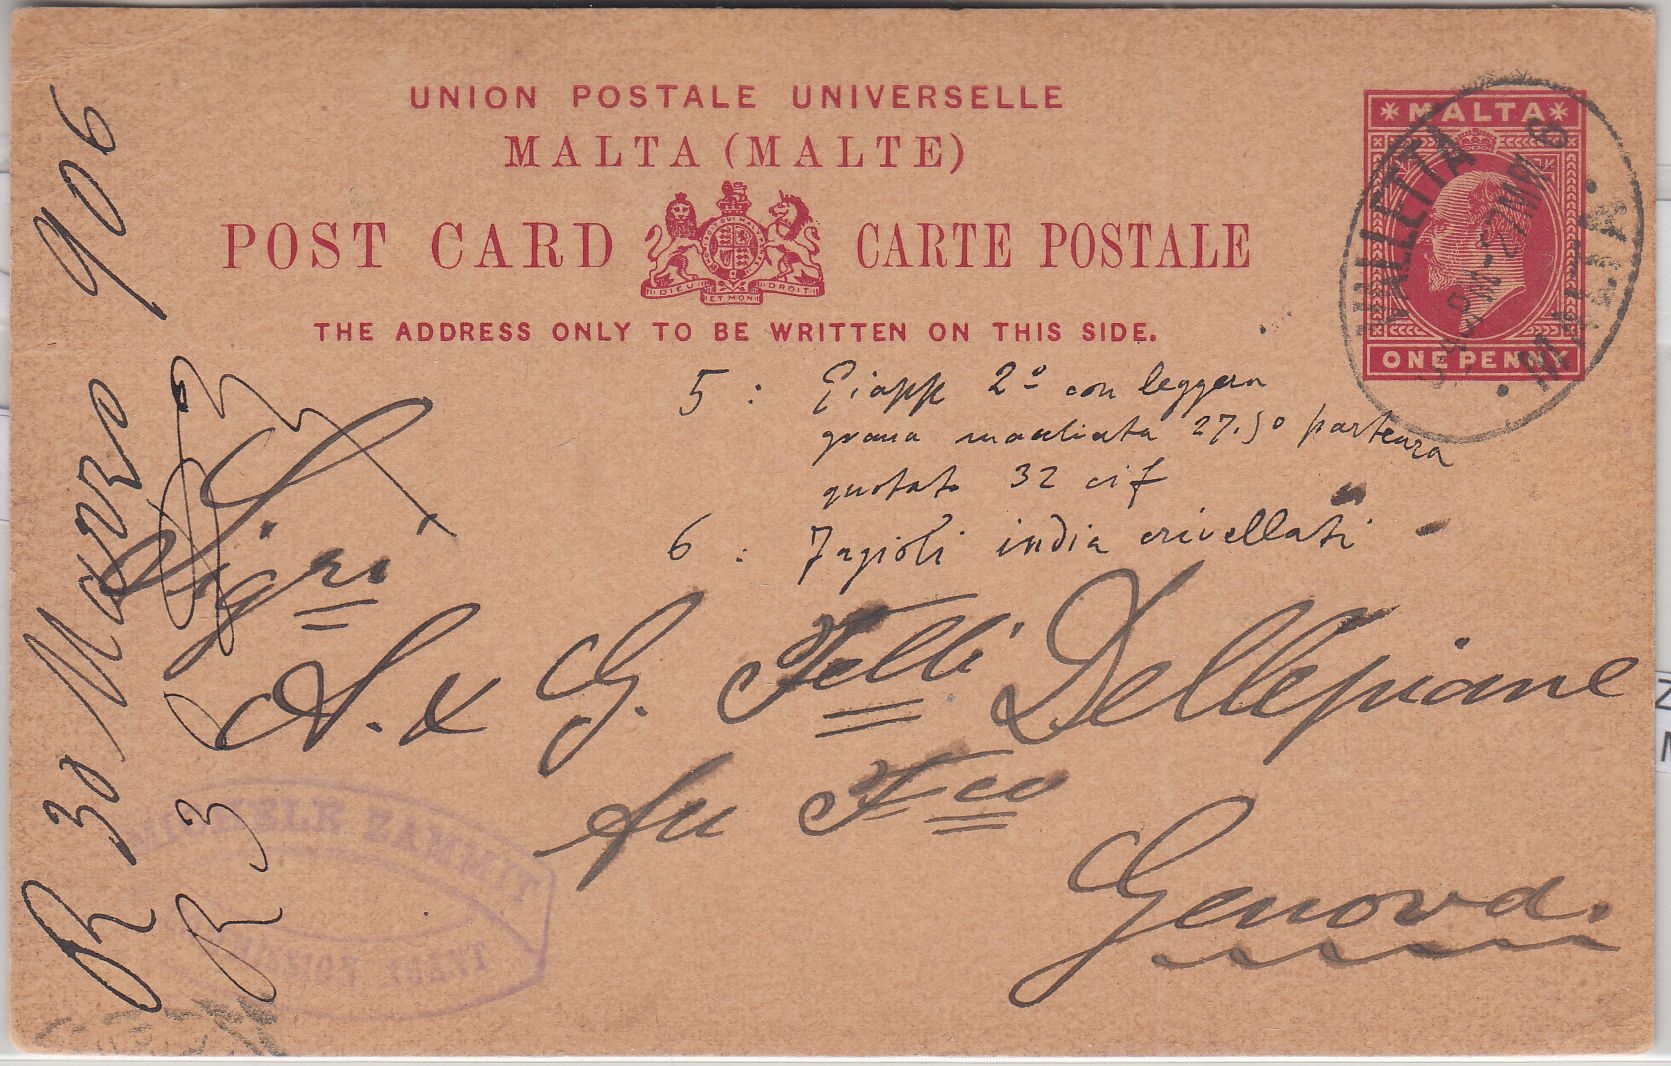 UNION POSTALE UNIVERSELLE
MALTA (MALTE)
POST CARD CARTE POSTALE
DIEU ET MON DROIT
THE ADDRESS ONLY TO BE WRITTEN ON THIS SIDE.
MALTA
ONE PENNY
VALLETTA
27 MR 6
MALTA
R 30 Marzo 906
R 3
5 : Giapp 2º con leggera
grana macchiata 27.50 partenza
quotato 32 cif
6 : Fagioli india crivellati
Sigri
A. & G. Felli Dellepiane
fu Fco
Genova.
MICHELE ZAMMIT
COMMISSION AGENT